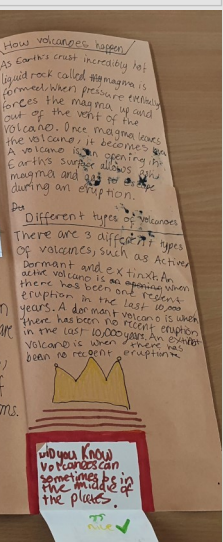 How volcanoes happen
As Earth's crust incredibly hot
liquid rock called magma is
formed. When pressure eventually
forces the magma up and
out of the vent of the
volcano. Once magma leaves
the volcano, it becomes
A volcano is an opening in
Earth's allows
magma and gas to
during an eruption.
Different types of volcanoes
There are 3 different types
Of volcanoes, such as Active
Dormant and extinxt. An
active volcano is when
there has been one resent
eruption in the last 10,000
years. A dormant volcano is when
there has been no recent eruption
in the last 10,000 years. An extinct
volcano is when there has
been no recent eruption
Did you know
volcanoes can
sometimes be in
the middle of
the plates.